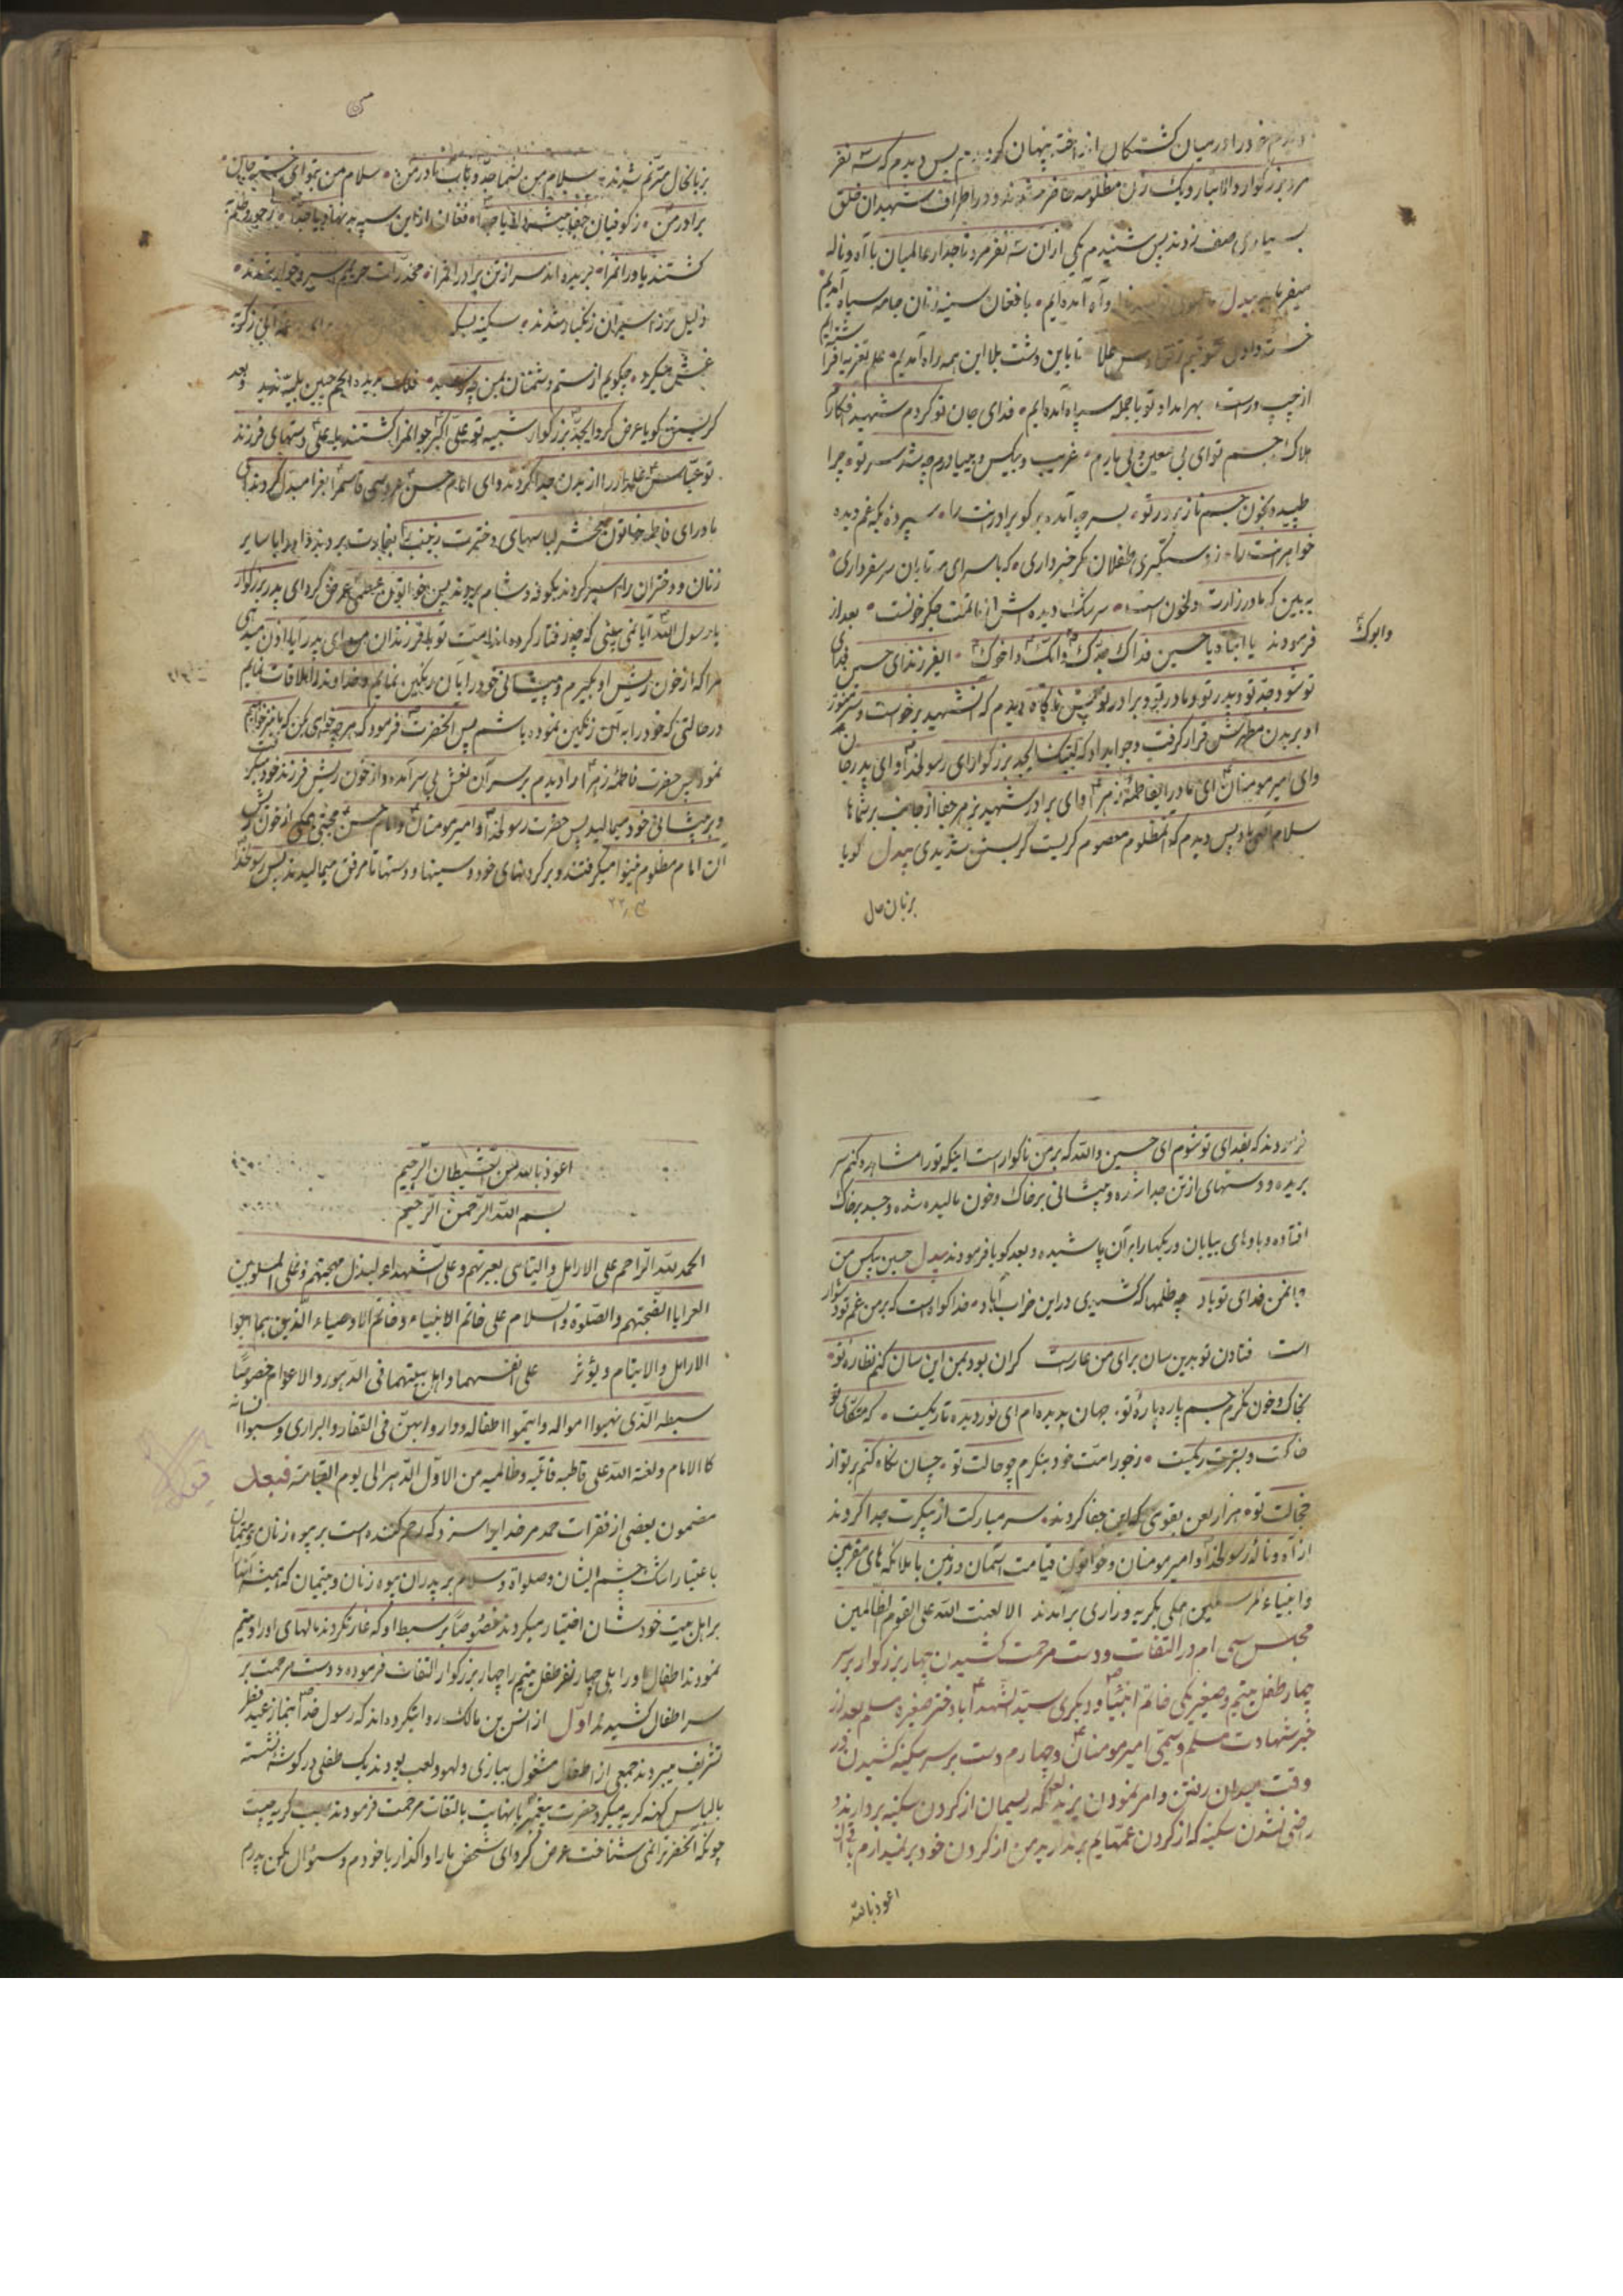 خود را در میان کشتکان انداخته پنهان کردم پس دیدم که سه نفر
مرد بزرکوار والاتبار و یک زن مظلومه حاضر شدند و در اطراف شهیدان خلق
بسیاری صف زدند پس شنیدم یکی از آن سه نفر مرد تاجدار عالمیان با آه و ناله
میفرماید بیدل وآه آمده‌ایم با فغان سینه زنان جامه سیاه آمده‌ایم
تا باین دشت بلا این همه راه آمدیم علم تعزیه افراشته‌ایم
از چپ و راست بهر امداد تو با جمله سپاه آمده‌ایم فدای جان تو کردم شهید فکارم
هلاک جسم تو ای بی معین و بی یارم غریب و بیکس و بی یاورم چه شد سر تو چرا
طپیده بخون جسم ناز پرور تو بسر چه آمده بر کو برادرنت را سپرده بکه غم دیده
خواهرنت را ز دستکیری طفلان مکر خبر داری که با سرای مه تابان سر سفر داری
به بین که مادر زارت دلخون است سرشک دیده‌اش از ماتمت جکر خونست بعد از
فرمودند یا ابتاه یا حسین فداک جدک وامک واخوک ایفرزند ای حسین فدای
وابوک
تو شود جد تو و پدر تو و مادر تو و برادر تو پس ناکاه دیدم که آنشهید برخواست و سر منور
او بر بدن مطهرش قرار کرفت و جواب داد که لبیک ایجد بزرکوار ای رسولخدا و ای پدر جان
و ای امیرمومنان ای مادر ایفاطمه زهرا و ای برادر شهید بزهر جفا از جانب بر شماها
سلام الهی باد پس دیدم که آنمظلوم معصوم کریست کریستن شدیدی بیدل کویا
بزبان حال
بزبانحال مترنم شدند سلام من بشما جد و باب و مادر من سلام من بتو ای
برادر من ز کوفیان
کشتند یاورانمرا بریده‌اند سر از تن برادرانمرا مخدرات حریمم اسیر و خوار شدند
ذلیل‌تر ز اسیران زنکبار شدند سکینه
غش میکرد چکویم از ستم دشمنان بمن چه رسید
کریستن کویا عرض کرد ایجد بزرکوار شبیه تو علی اکبر جوانمرا کشتند یا علی دستهای فرزند
تو عباس علمدار را از بدن جدا کردند و ای امام حسن عروسی قاسمرا بعزا مبدل کردند ای
مادر ای فاطمه خاتون محشر لباسهای دخترت زینب را بغارت بردند و او را با سایر
زنان و دختران را اسیر کردند بکوفه و شام بردند پس خواتون عظمی عرض کرد ای پدر بزرکوار
یا رسول الله آیا نمی بینی که چه رفتار کرده‌اند امت تو با فرزندان من ای پدر آیا اذن میدهی
مرا که از خون ریش او بکیرم و پیشانی خود را بآن رنکین نمایم و خداوند را ملاقات نمایم
در حالتی که خود را به آن رنکین نموده باشم پس آنحضرت فرمود که هر چه خواهی بکن که ما نیز خواهیم
نمود پس حضرت فاطمه زهرا را دیدم بر سر آن نعش بی سر آمده و از خون ریش فرزند خود میکرفت
و بر پیشانی خود میمالید پس حضرت رسولخدا و امیرمومنان و امام حسن مجتبی همکی از خون ریش
آن امام مظلوم بینوا میکرفتند و بر کردنهای خود و سینها و دستها تا مرفق میمالیدند پس رسولخدا
فرمودند که بفدای تو شوم ای حسین والله که بر من ناکوار است اینکه تو را مشاهده کنم سر
بریده و دستهای از تن جدا شده و پیشانی بر خاک و خون مالیده شده و جسد بر خاک
افتاده و بادهای بیابان و ریکها را بر آن پاشیده و بعد کویا فرمودند بیدل حسین بیکس من
جانمن فدای تو باد چه ظلمها که کشیدی در این خراب آباد خدا کواه است که بر من غم تو دشوار
است فتادن تو بدین سان برای من عار است کران بود بمن این سان کنم نظاره تو
بخاک و خون نکرم جسم پاره پاره تو جهان بدیده‌ام ای نور دیده تاریکست که متکای تو
خاکست و بسترت ریکست ز جور امت خود بنکرم چو حالت تو چسان نکاه کنم بر تو از
خجالت تو هزار لعن بقومی که این جفا کردند سر مبارکت از پیکرت جدا کردند
از آه و ناله رسولخدا و امیرمومنان و خواتون قیامت آسمان و زمین با ملائکه‌های مقربین
و انبیاء مرسلین همکی بکریه و زاری برآمدند الا لعنت الله علی القوم الظالمین
مجلس سی ام در التفات و دست مرحمت کشیدن چهار بزرکوار بر سر
چهار طفل یتیم و صغیر یکی خاتم انبیا و دیکری سید الشهدا با دختر صغیره مسلم بعد از
خبر شهادت مسلم و سیمی امیرمومنان و چهارم دست بر سر سکینه کشیدن در
وقت میدان رفتن و امر نمودن یزید لعین که ریسمان از کردن سکینه بردارند و
راضی نشدن سکینه که از کردن عمهایم برندارید من از کردن خود برنمیدارم
اعوذ بالله
اعوذ بالله من الشیطان الرجیم
بسم الله الرحمن الرحیم
الحمد لله الراحم علی الارامل والیتامی بعبرتهم وعلی الشهداء لبذل مهجتهم وعلی المسلوبین
العرایا لضجتهم والصلوة والسلام علی خاتم الانبیاء وخاتم الاوصیاء الذین
الارامل والایتام ویؤثر علی انفسهما واهل بیتهما فی الدهور والاعوام خصوصا
سبطه الذی نهبوا امواله وایتموا اطفاله ودوابهن فی القفار والبراری وسبوا نسائه
کالاماء ولعنة الله علی قاطبه قاتلیه وظالمیه من الاول الدهر الی یوم القیامة فبعد
مضمون بعضی از فقرات حمد مر خدایرا سزد که رحم کننده است بر بیوه زنان و یتیمان
با عتبار اشک چشم ایشان و صلواة و سلام بر پدران بیوه زنان و یتیمان که همیشه آنها
بر اهل بیت خودشان اختیار میکردند خصوصا بر سبط او که غارتکردند مالهای او را و یتیم
نمودند اطفال او را بلی چهار نفر طفل یتیم را چهار بزرکوار التفات فرموده و دست مرحمت بر
سر اطفال کشیدند اول از انس بن مالک روایتکرده‌اند که رسول خدا بنماز عید فطر
تشریف میبردند جمعی از اطفال مشغول ببازی و لهو و لعب بودند یک طفلی در کوشه نشسته
با لباس کهنه کریه میکرد حضرت پیغمبر با نهایت با التفات مرحمت فرمودند سبب کریه چیست
چونکه آنحضرترا نمی شناخت عرض کرد ای شخص مارا واکذار با خودم و سئوال مکن پدرم